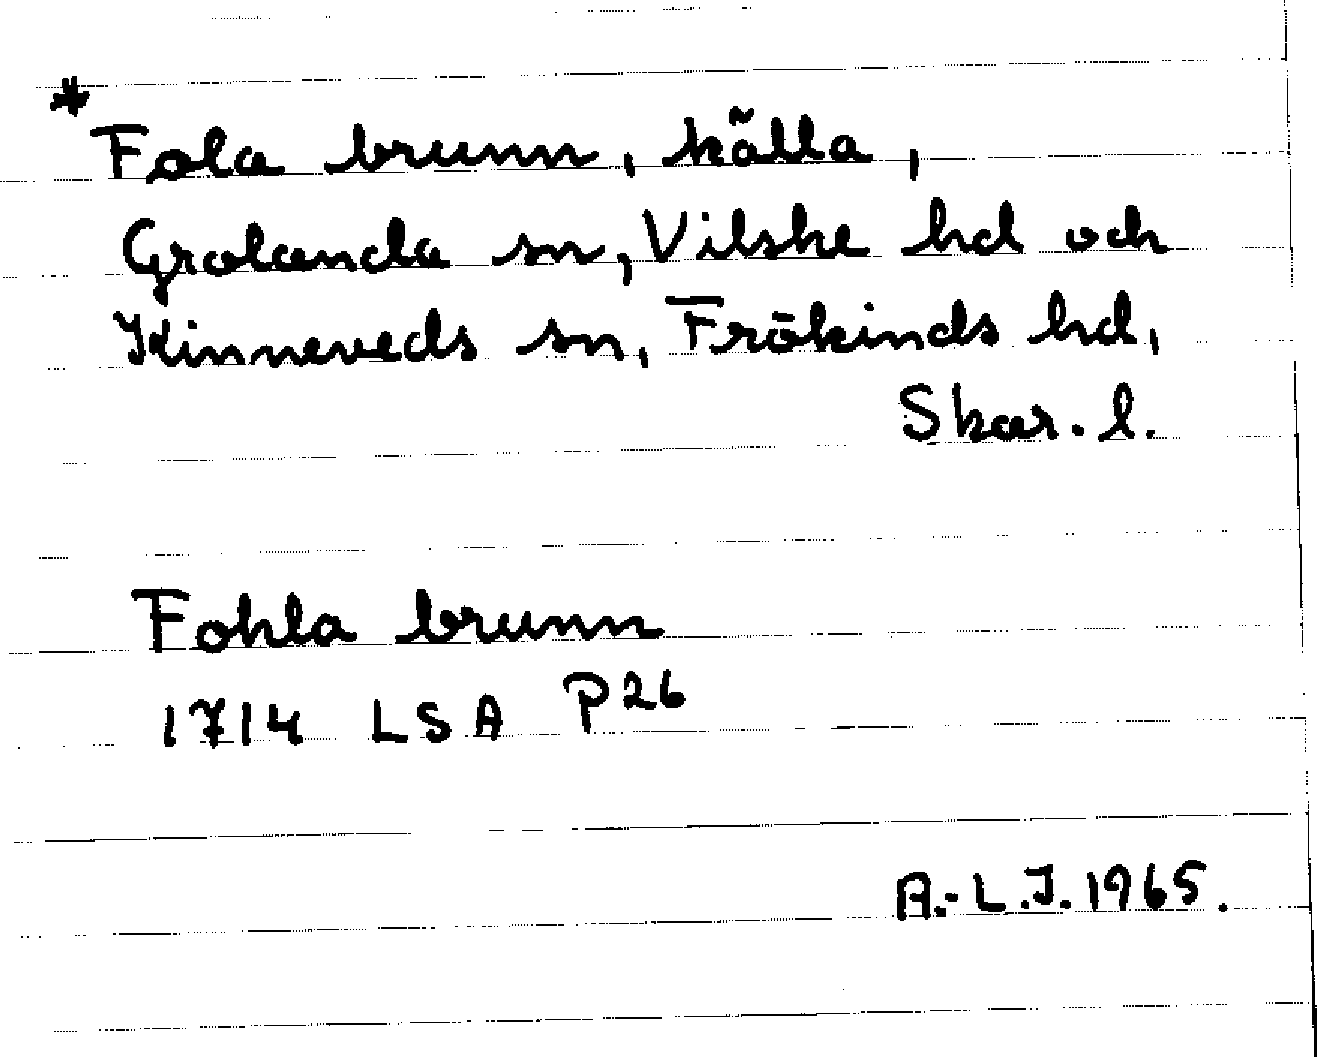 * Fola brunn, källa,
Grolanda sn, Vilske hd och
Kinneveds sn, Frökinds hd,
Skar. l.
Fohla brunn
1714 LSA P26
A.-L.J. 1965.